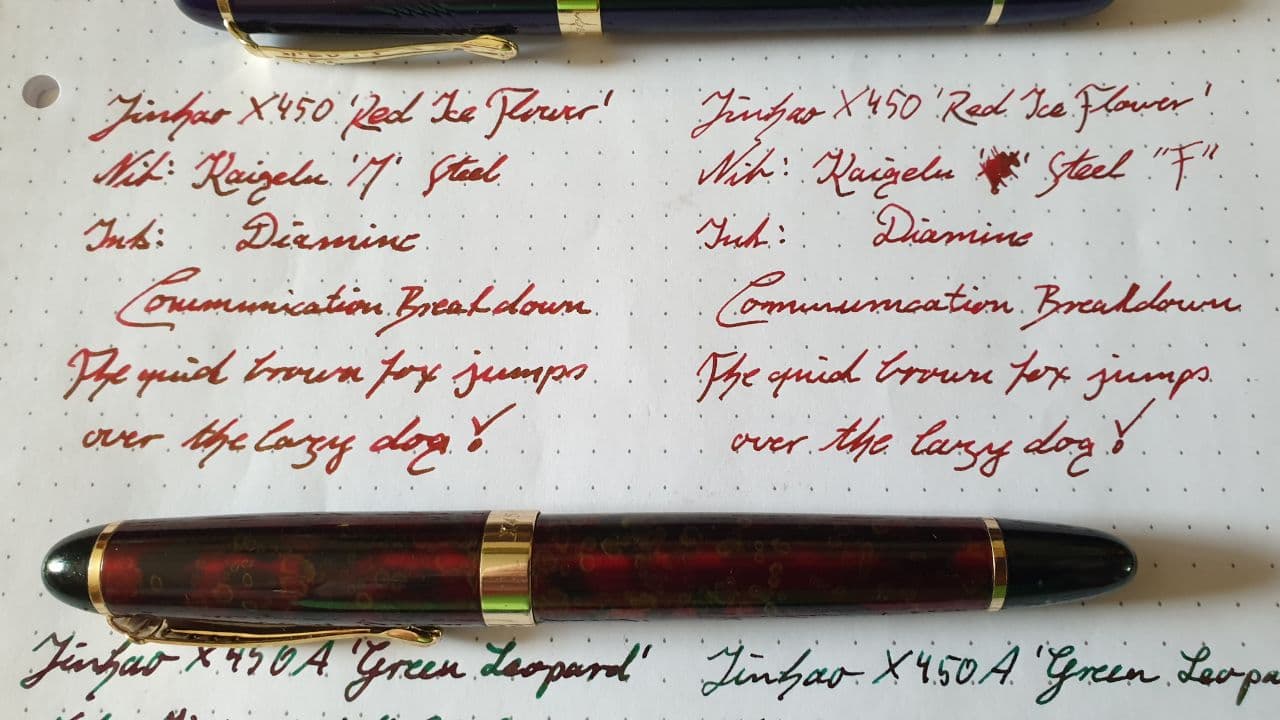 Jinhao X450 'Red Ice Flower'
Nib: Kaigelu 'M' Steel
Ink: Diamine
Communication Breakdown
The quick brown fox jumps
over the lazy dog!
Jinhao X450 'Red Ice Flower'
Nib: Kaigelu Steel "F"
Ink: Diamine
Communication Breakdown
The quick brown fox jumps
over the lazy dog!
Jinhao X450A 'Green Leopard'
Jinhao X450A 'Green Leopa